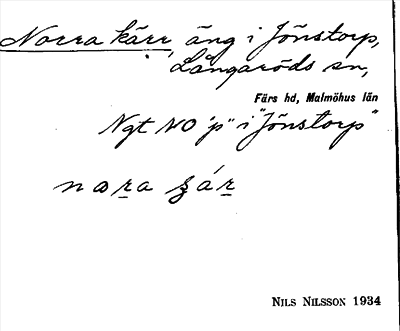 Norra kärr, äng i Jönstorp,
Långaröds sn,
Färs hd, Malmöhus län
Ngt NO "p" i "Jönstorp"
NILS NILSSON 1934